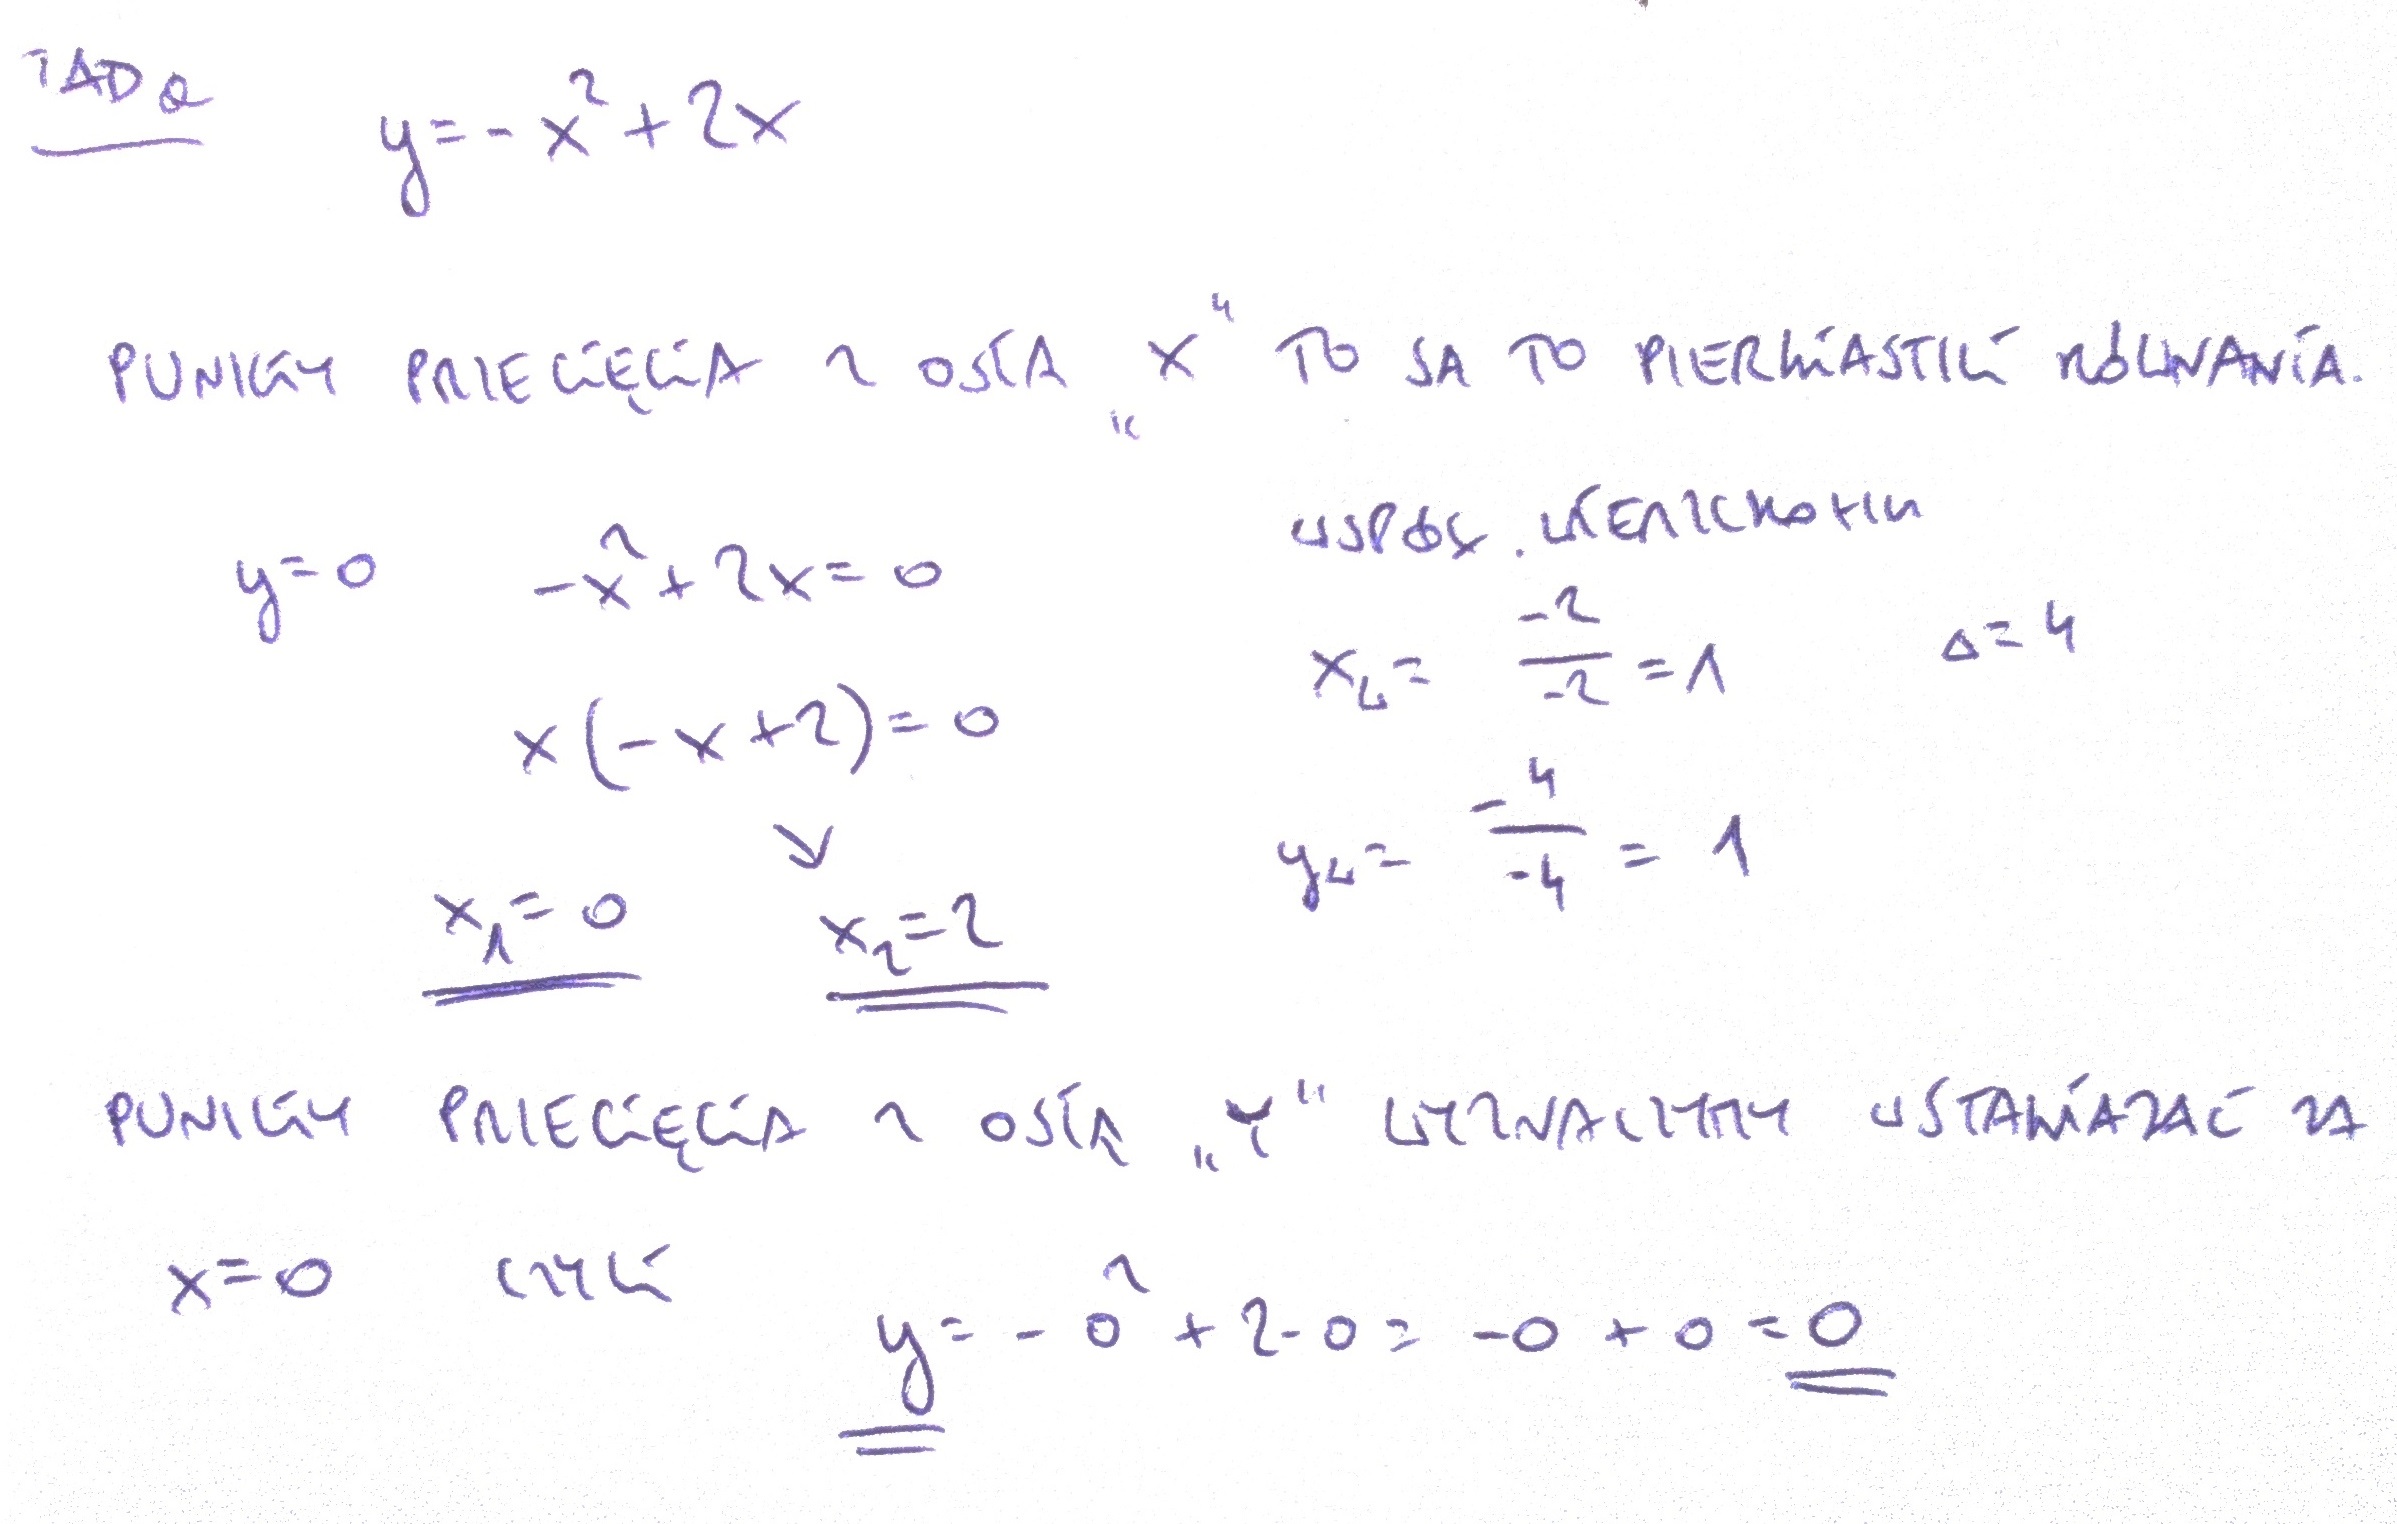 ZAD a
y=-x²+2x
PUNKTY PRZECIĘCIA Z OSIA „X” TO SA TO PIERWIASTKI RÓWNANIA.
y=0 -x²+2x=0
x(-x+2)=0
x₁=0 x₂=2
WSPÓŁ. WIERZCHOŁKA
x_w = -2/-2 = 1 Δ=4
y_w = -4/-4 = 1
PUNKTY PRZECIĘCIA Z OSIĄ „Y” WYZNACZYMY WSTAWIAJAC ZA
x=0 CZYLI
y=-0²+2·0=-0+0=0